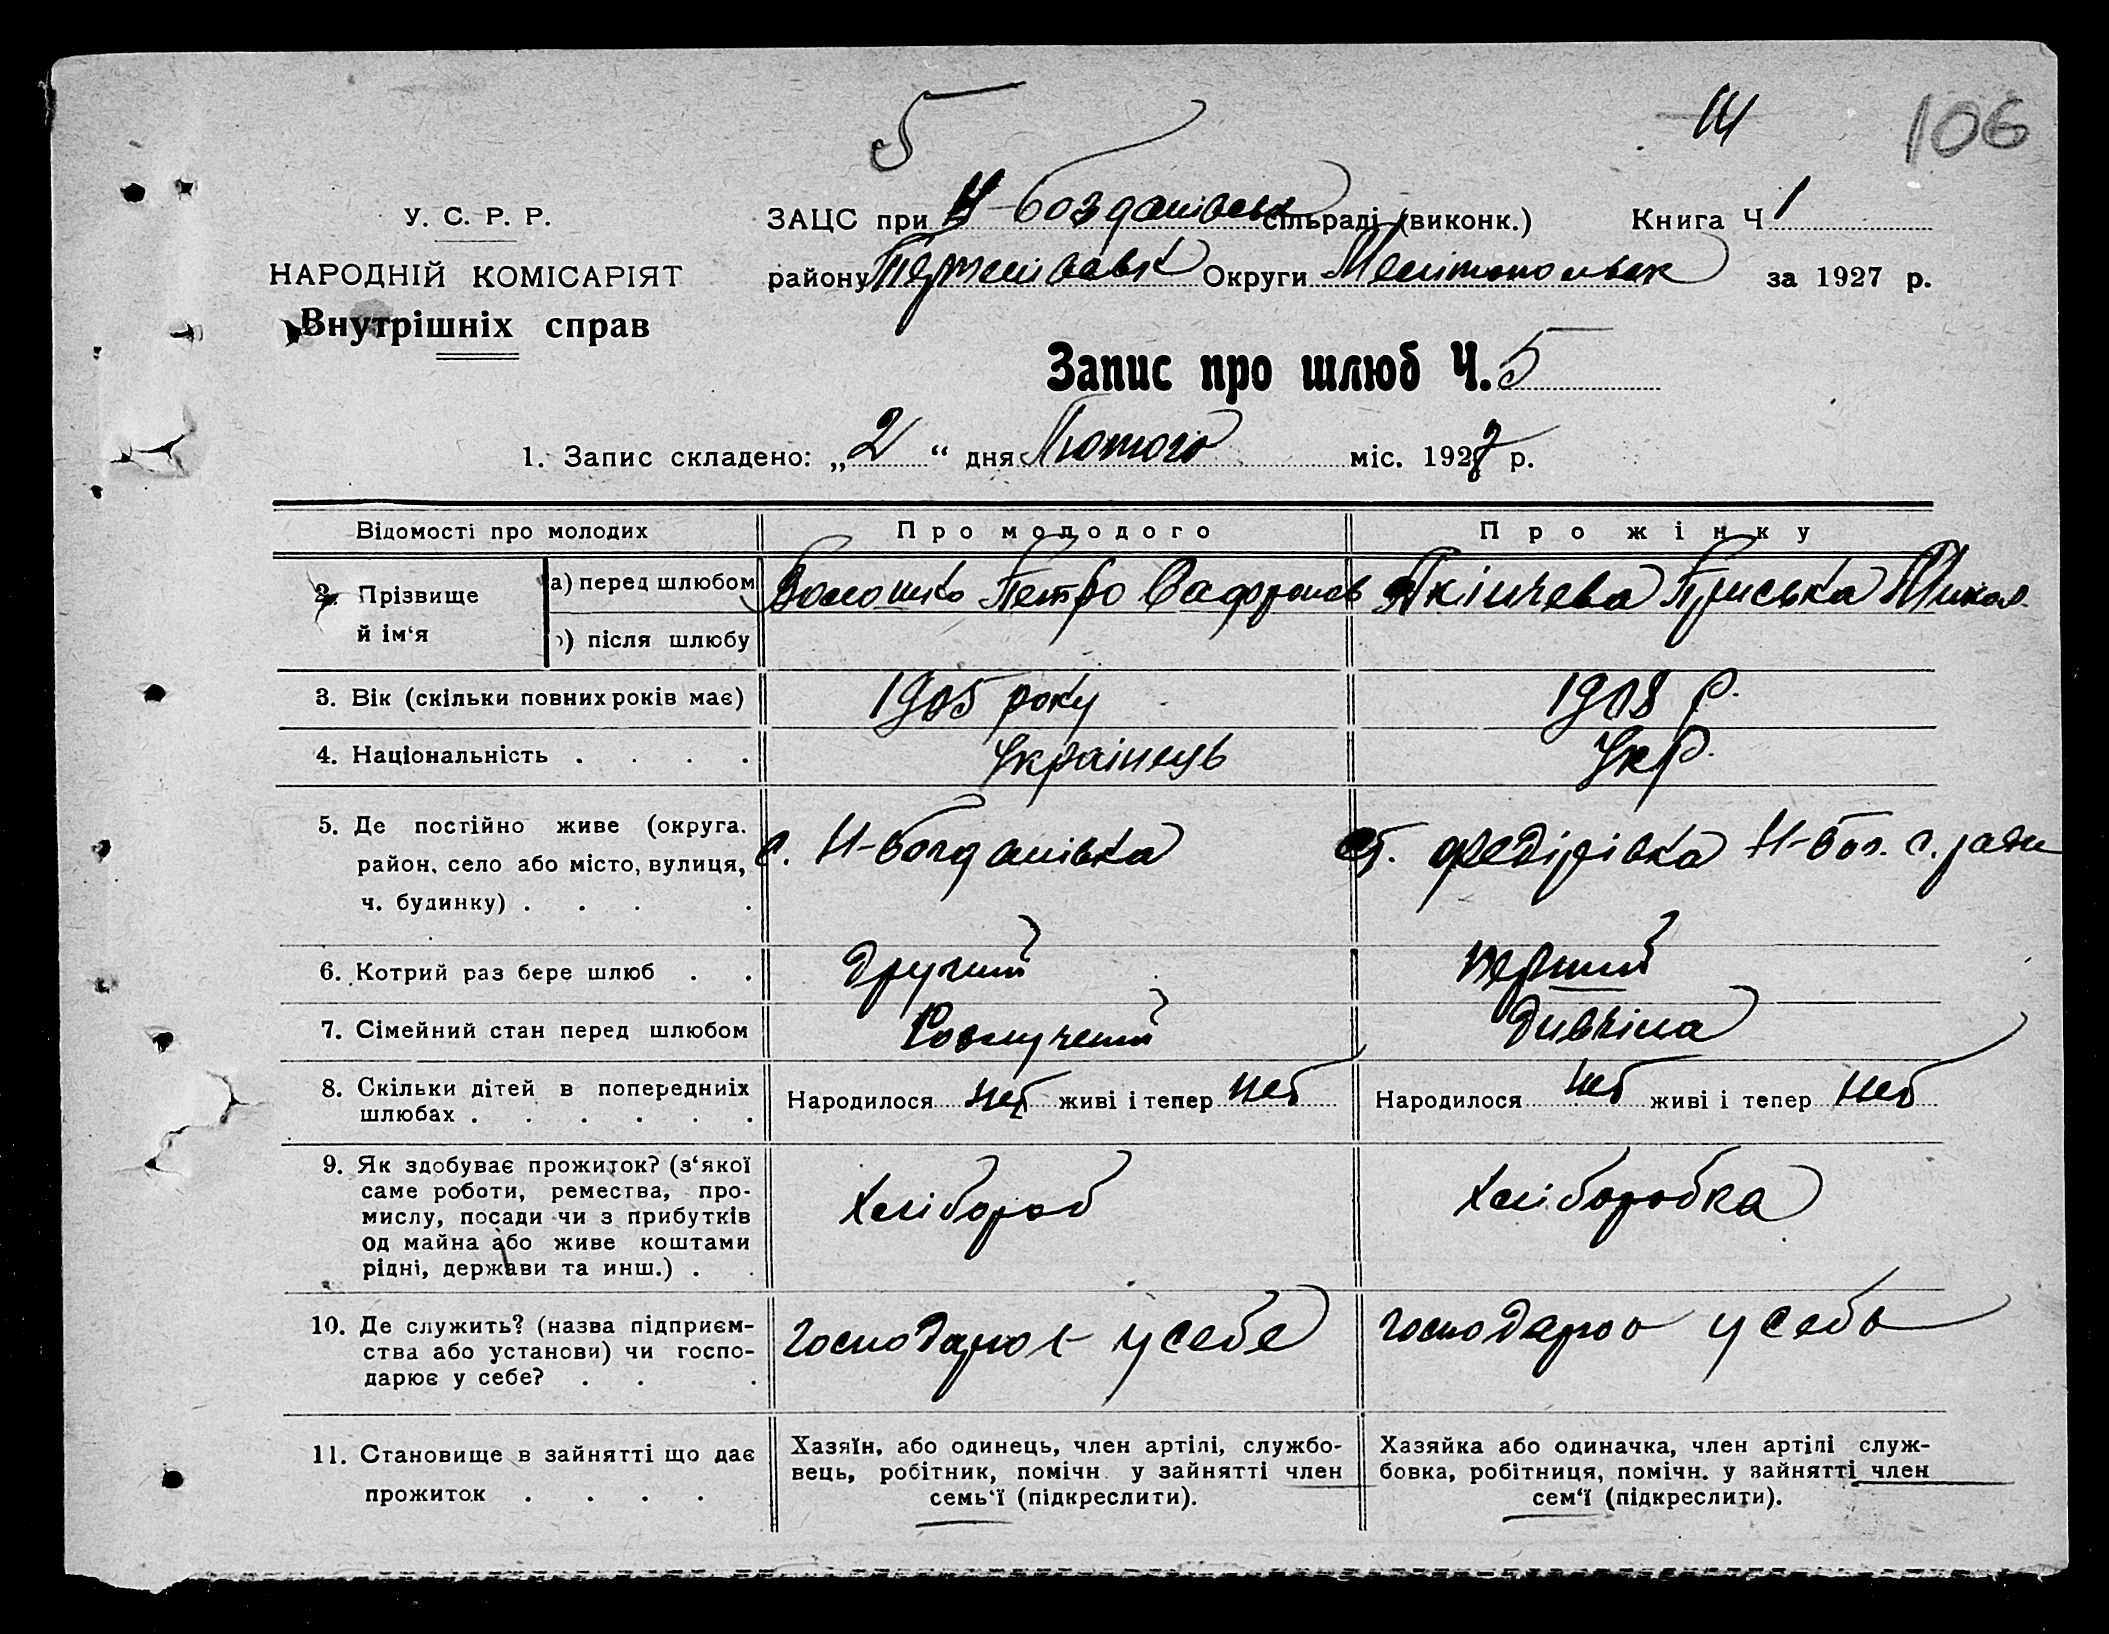 5
106
У. С. Р. Р.
НАРОДНІЙ КОМІСАРІЯТ
Внутрішніх справ
ЗАЦС при Н-богданівськ сільраді (виконк.) Книга Ч 1
району Округи Мелітопольск за 1927 р.
Запис про шлюб Ч. 5
1. Запис складено: „2“ дня Лютого міс. 1927 р.
Відомості про молодих Про молодого Про жінку
2. Прізвище й ім‘я а) перед шлюбом Волошко Петро Сафронов Якімчева Пріська Микол.
б) після шлюбу
3. Вік (скільки повних років має) 1905 року 1908 р.
4. Національність . . . . Українець Укр.
5. Де постійно живе (округа. район, село або місто, вулиця, ч. будинку) . . . . с. Н-богданівка ст. федірівка Н-бог. с. ради
6. Котрий раз бере шлюб . . другий перший
7. Сімейний стан перед шлюбом Розлучений Дивчіна
8. Скільки дітей в попередниіх шлюбах . . . . . . Народилося нет живі і тепер нет Народилося нет живі і тепер нет
9. Як здобуває прожиток? (з‘якої саме роботи, ремества, промислу, посади чи з прибутків од майна або живе коштами рідні, держави та инш.) . . Хлібороб Хліборобка
10. Де служить? (назва підприємства або установи) чи господарює у себе? . . . господарює у себе господарює у себе
11. Становище в зайнятті що дає прожиток . . . . Хазяїн, або одинець, член артілі, службовець, робітник, помічн. у зайнятті член семь‘ї (підкреслити). Хазяйка або одиначка, член артілі службовка, робітниця, помічн. у зайнятті член сем‘ї (підкреслити).